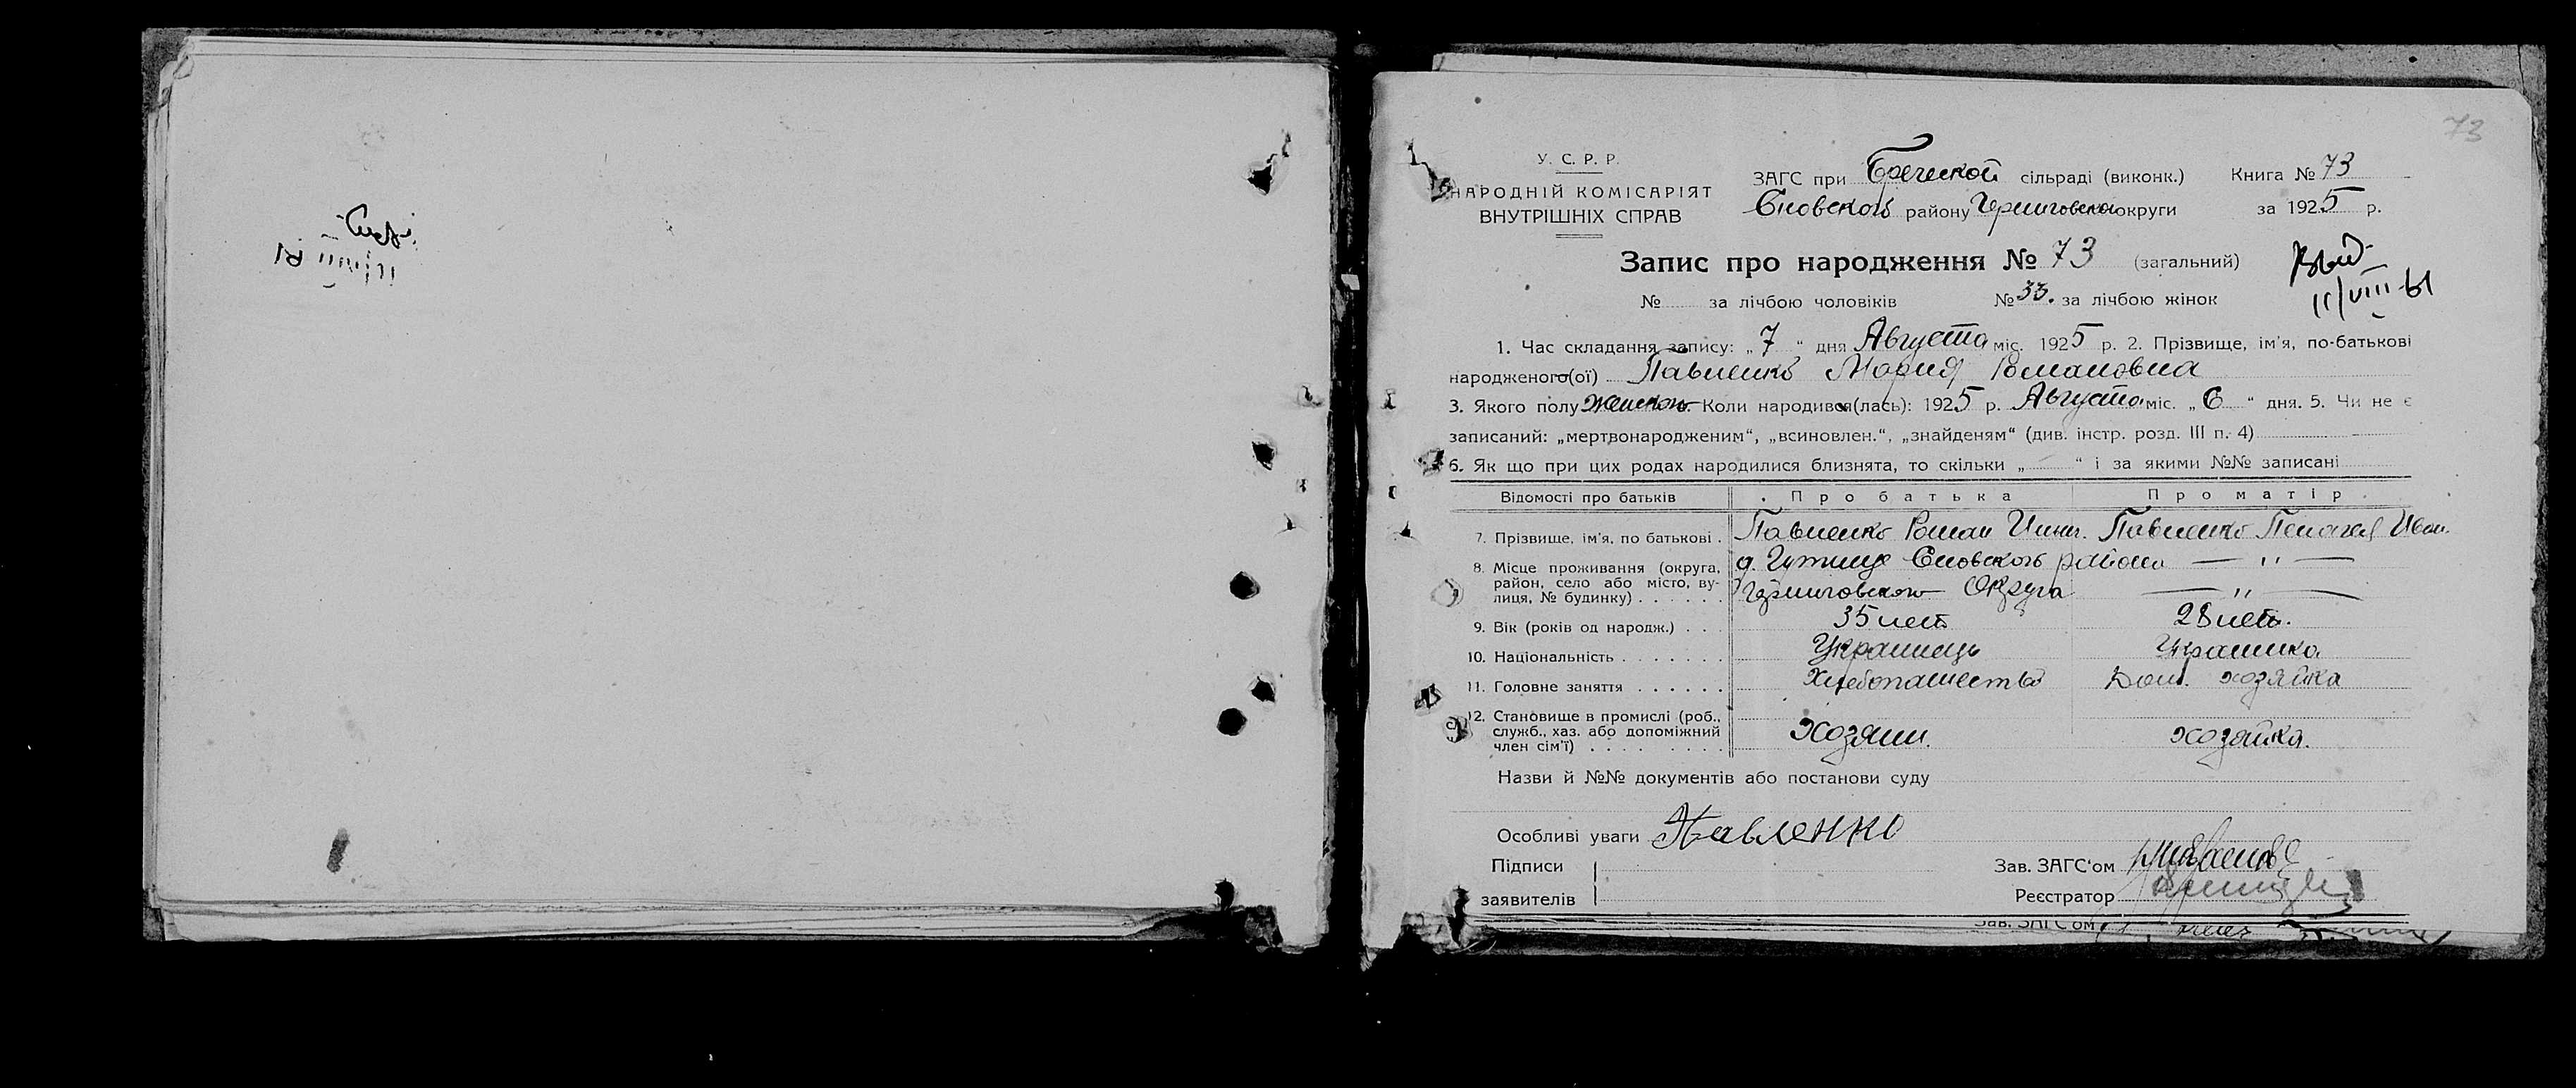 73
У. С. Р. Р.
НАРОДНІЙ КОМІСАРІЯТ
ВНУТРІШНІХ СПРАВ
ЗАГС при Бреческой сільраді (виконк.) Книга № 73
Сновского району Черниговской округи за 1925 р.
Запис про народження № 73 (загальний)
Выд.
11/VIII-61
№ за лічбою чоловіків № 33. за лічбою жінок
1. Час складання запису: „7“ дня Августа міс. 1925 р. 2. Прізвище, ім'я, по-батькові
народженого(ої) Павленко Мария Романовна
3. Якого полу женского. Коли народився(лась): 1925 р. Августа міс. „6“ дня. 5. Чи не є
записаний: „мертвонародженим“, „всиновлен.“, „знайденям“ (див. інстр. розд. III п. 4)
6. Як що при цих родах народилися близнята, то скільки „ “ і за якими №№ записані
Відомості про батьків Про батька Про матір
7. Прізвище, ім'я, по батькові . Павленко Роман Павленко Пелагея Иван.
8. Місце проживання (округа, район, село або місто, вулиця, № будинку) д. Гутище Сновского района — " —
Черниговского Округа — " —
9. Вік (років од народж.) . . . 35 лет 28 лет.
10. Національність . . . . . . . Украинець Украинка
11. Головне заняття . . . . . . Хлебопашество Дом. хозяйка
12. Становище в промислі (роб., служб., хаз. або допоміжний член сім'ї) . . . . Хозяин. хозяйка.
Назви й №№ документів або постанови суду
Особливі уваги Павленко
Підписи
заявителів
Зав. ЗАГС'ом
Реєстратор
Зав. ЗАГС'ом